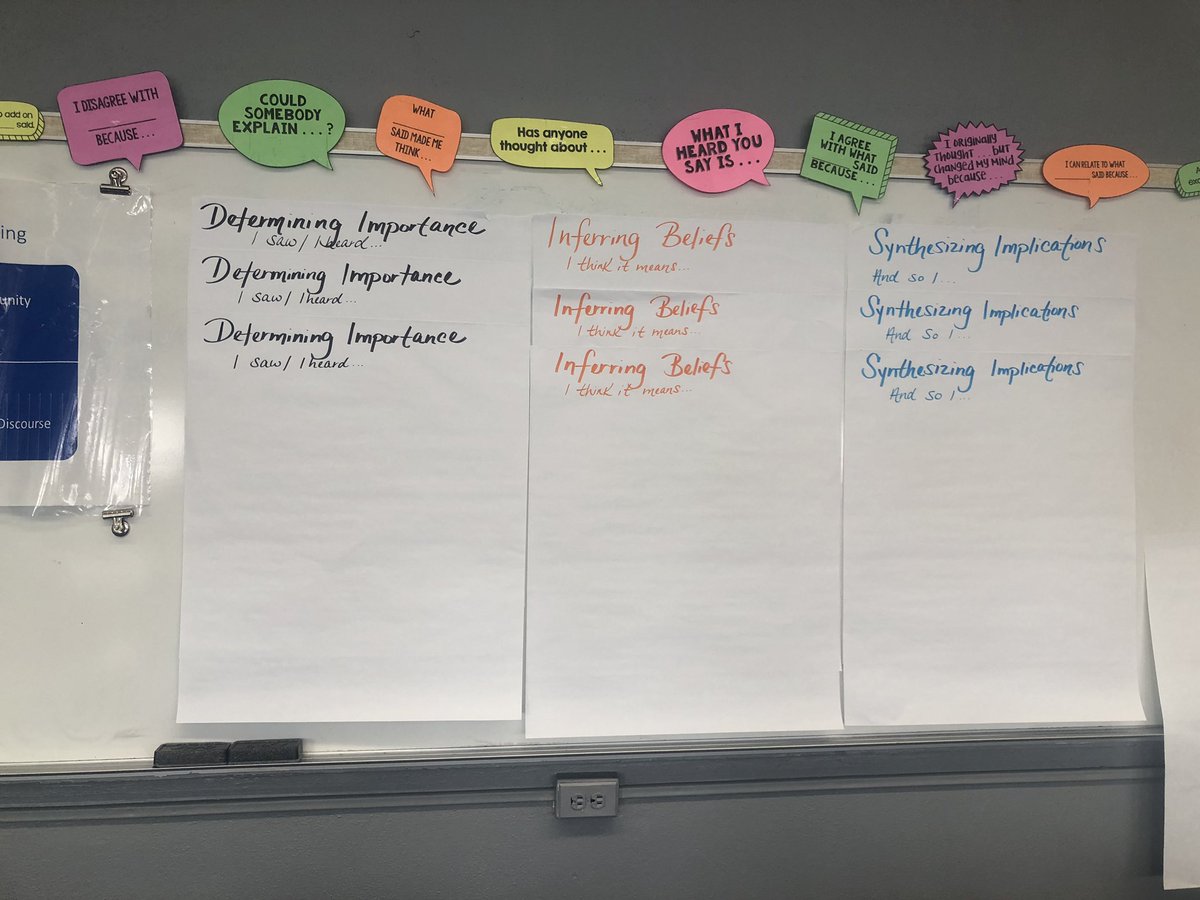 add on
said.
I DISAGREE WITH
BECAUSE...
COULD
SOMEBODY
EXPLAIN...?
WHAT
SAID MADE ME
THINK...
Has anyone
thought about...
WHAT I
HEARD YOU
SAY IS...
I AGREE
WITH WHAT
SAID
BECAUSE...
I ORIGINALLY
THOUGHT... BUT
CHANGED MY MIND
BECAUSE...
I CAN RELATE TO WHAT
SAID BECAUSE...
Discourse
Determining Importance
I saw/ I heard...
Determining Importance
I saw/ I heard...
Determining Importance
I saw/ I heard...
Inferring Beliefs
I think it means...
Inferring Beliefs
I think it means...
Inferring Beliefs
I think it means...
Synthesizing Implications
And so I...
Synthesizing Implications
And so I...
Synthesizing Implications
And so I...